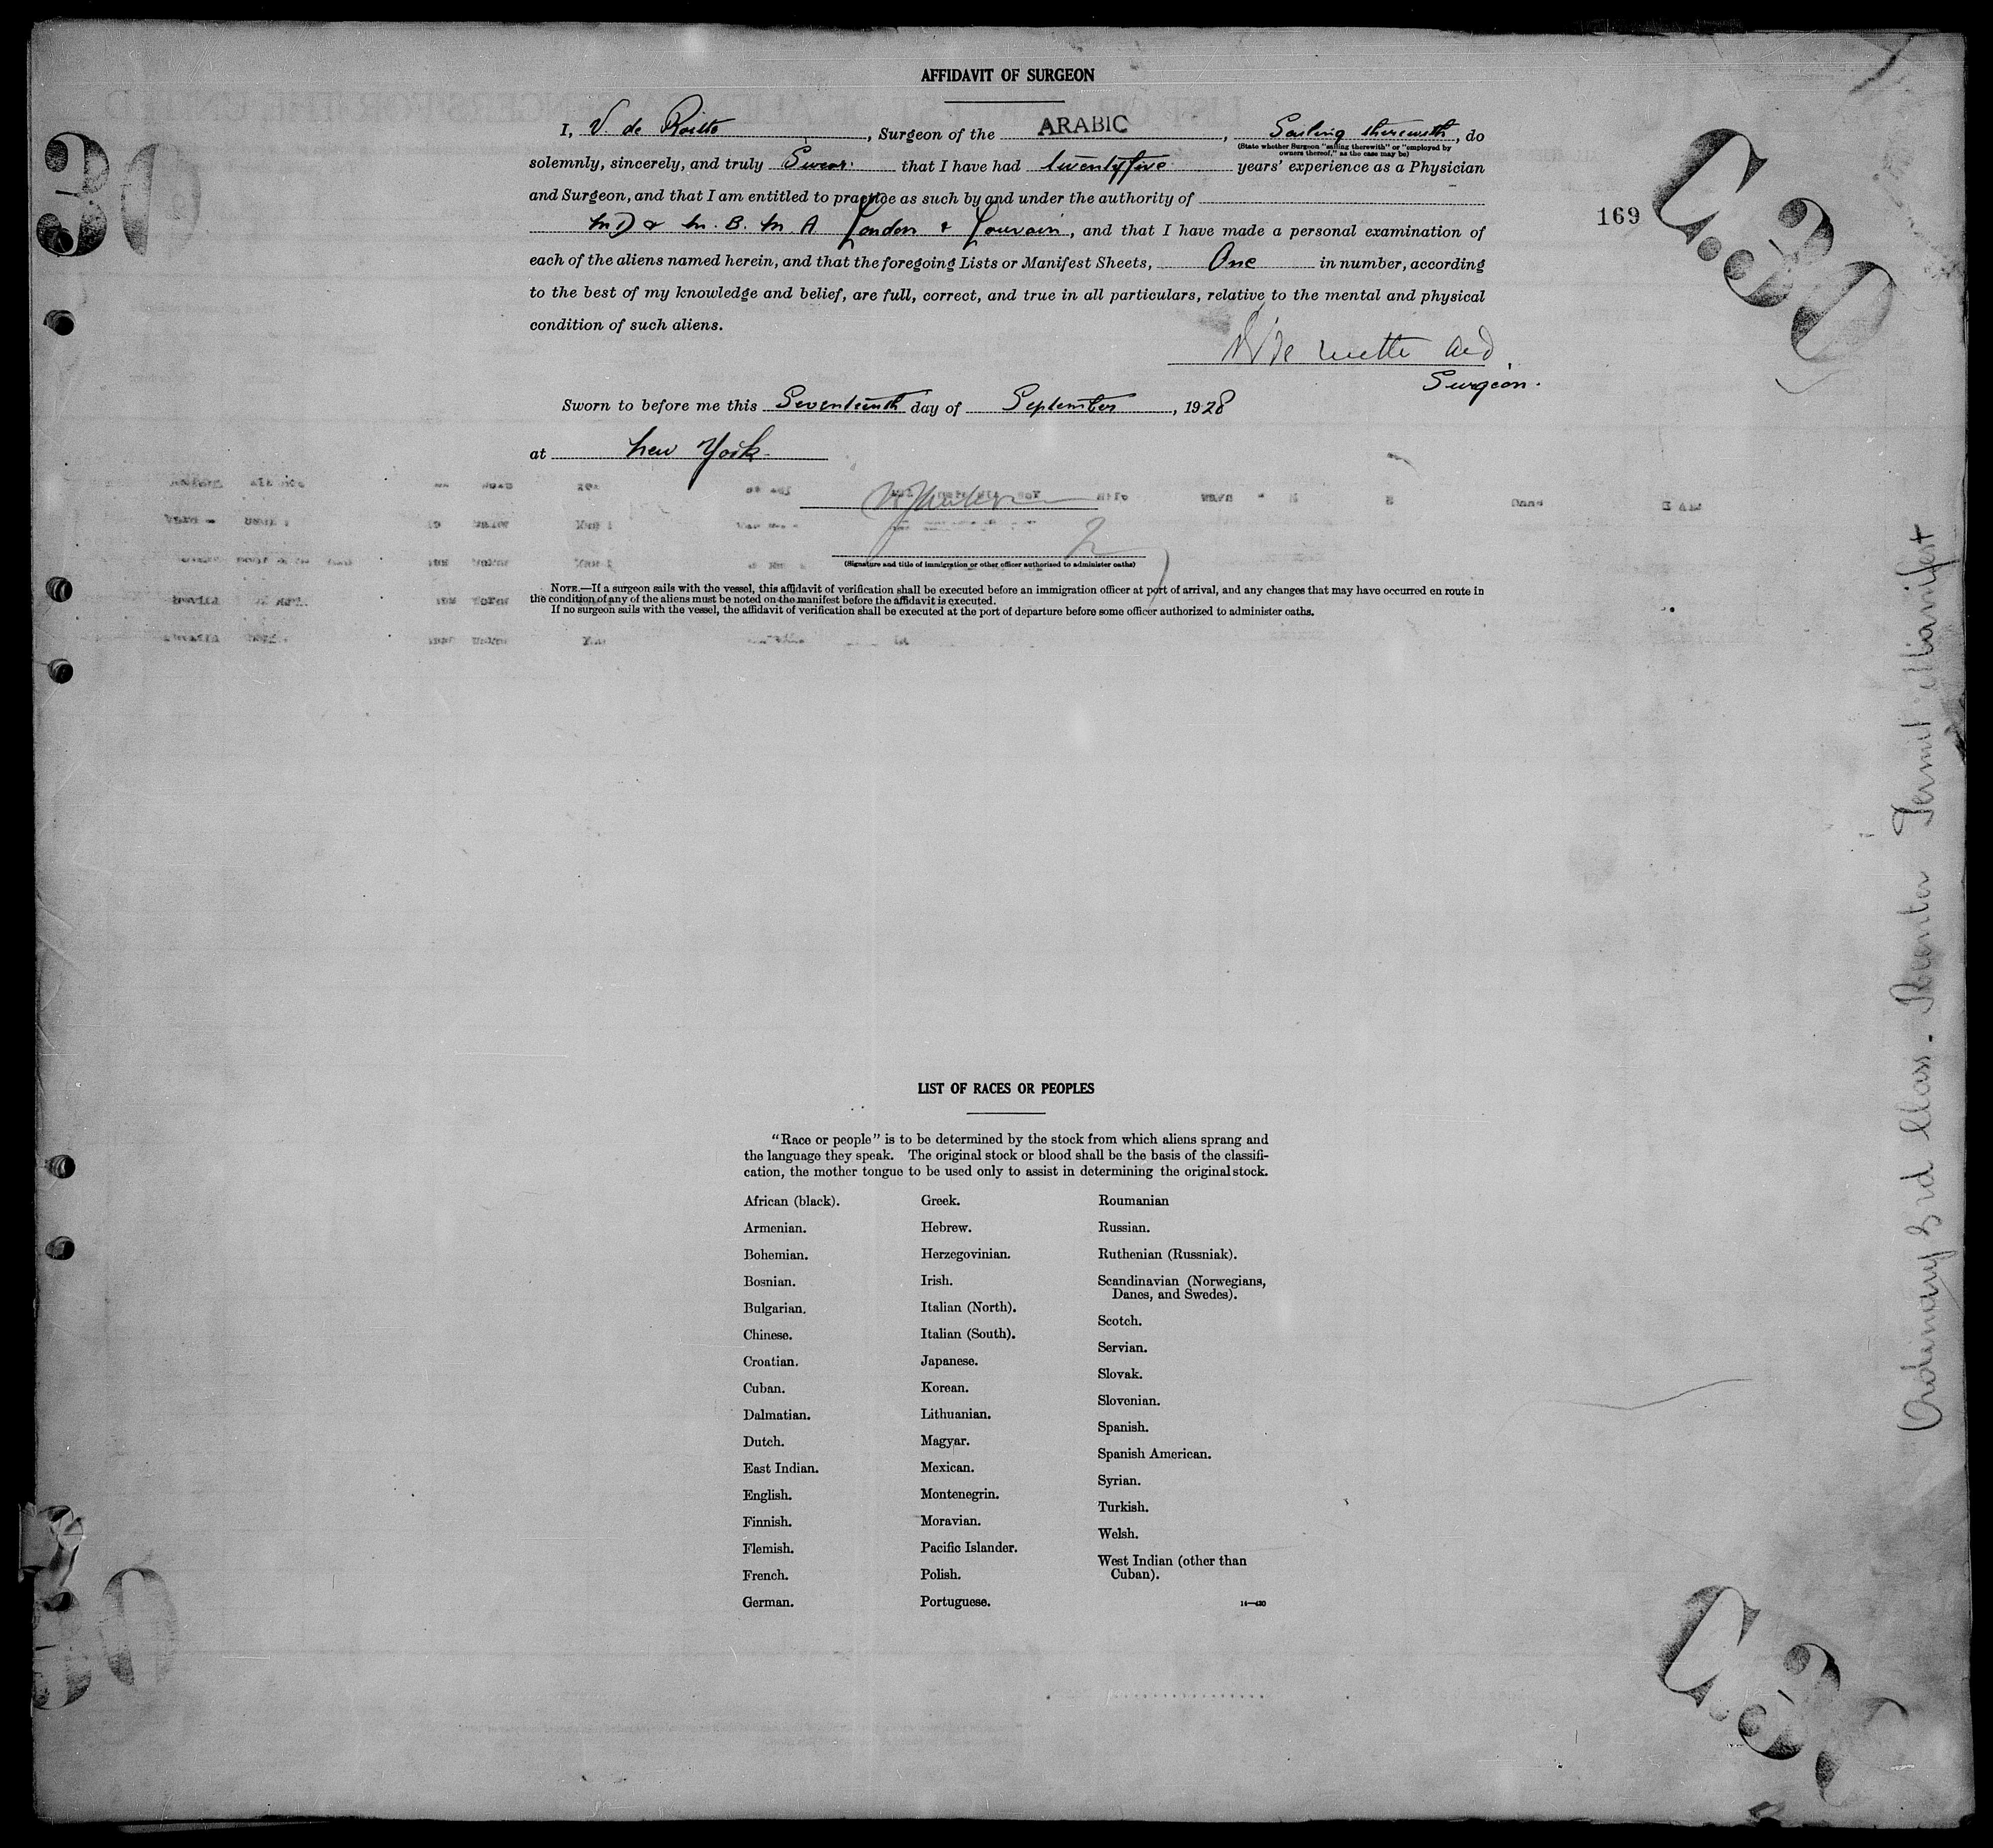 AFFIDAVIT OF SURGEON
I, V. de , Surgeon of the ARABIC, Sailing therewith, do
(State whether Surgeon "sailing therewith" or "employed by
owners thereof," as the case may be)
solemnly, sincerely, and truly Swear that I have had twenty five years' experience as a Physician
and Surgeon, and that I am entitled to practice as such by and under the authority of
M D & M. B. M A London & Louvain, and that I have made a personal examination of
each of the aliens named herein, and that the foregoing Lists or Manifest Sheets, One in number, according
to the best of my knowledge and belief, are full, correct, and true in all particulars, relative to the mental and physical
condition of such aliens.
Surgeon.
Sworn to before me this Seventeenth day of September, 1928
at New York
(Signature and title of immigration or other officer authorized to administer oaths)
NOTE.—If a surgeon sails with the vessel, this affidavit of verification shall be executed before an immigration officer at port of arrival, and any changes that may have occurred en route in
the condition of any of the aliens must be noted on the manifest before the affidavit is executed.
If no surgeon sails with the vessel, the affidavit of verification shall be executed at the port of departure before some officer authorized to administer oaths.
30
169
C.30
Ordinary 3rd Class. Reenter Permit Manifest
LIST OF RACES OR PEOPLES
"Race or people" is to be determined by the stock from which aliens sprang and
the language they speak. The original stock or blood shall be the basis of the classifi-
cation, the mother tongue to be used only to assist in determining the original stock.
African (black).
Armenian.
Bohemian.
Bosnian.
Bulgarian.
Chinese.
Croatian.
Cuban.
Dalmatian.
Dutch.
East Indian.
English.
Finnish.
Flemish.
French.
German.
Greek.
Hebrew.
Herzegovinian.
Irish.
Italian (North).
Italian (South).
Japanese.
Korean.
Lithuanian.
Magyar.
Mexican.
Montenegrin.
Moravian.
Pacific Islander.
Polish.
Portuguese.
Roumanian
Russian.
Ruthenian (Russniak).
Scandinavian (Norwegians,
Danes, and Swedes).
Scotch.
Servian.
Slovak.
Slovenian.
Spanish.
Spanish American.
Syrian.
Turkish.
Welsh.
West Indian (other than
Cuban).
30
C.30